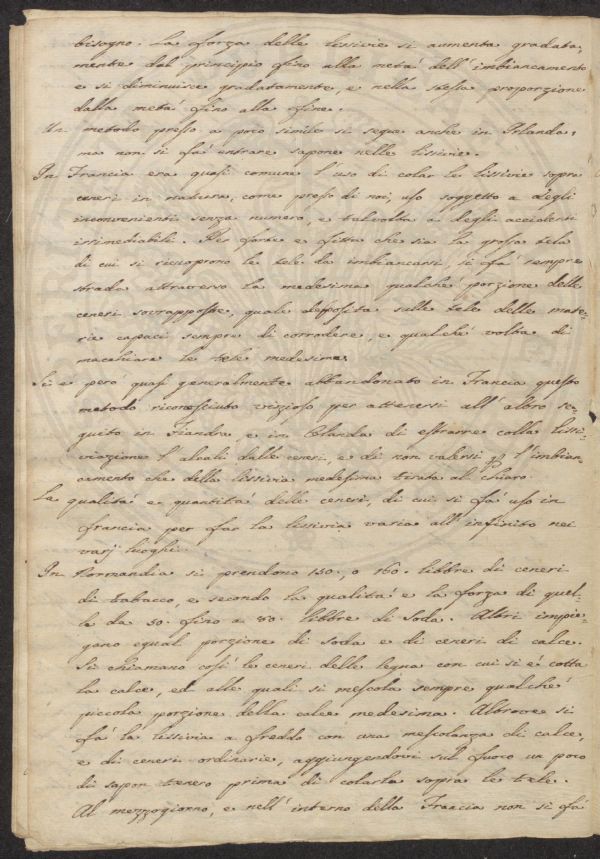 bisogno. La forza delle lissivie si aumenta gradata-
mente dal principio fino alla metà dell'imbiancamento
e si diminuisce gradatamente, e nella stessa proporzione
dalla metà fino alla fine.
Un metodo presso a poco simile si segue anche in Irlanda,
ma non si fà entrare sapone nelle lissivie.
In Francia era quasi comune l'uso di colar le lissivie sopra
ceneri in natura, come presso di noi, uso soggetto a degli
inconvenienti senza numero, e talvolta a degli accidenti
irrimediabili. Per forte e fitta che sia la grossa tela
di cui si ricuoprono le tele da imbiancarsi, si fà sempre
strada attraverso la medesima qualche porzione delle
ceneri sovrapposte, quale depposita sulle tele delle mate-
rie capaci sempre di corrodere, e qualche volta di
macchiare le tele medesime.
Si è però quasi generalmente abbandonato in Francia questo
metodo riconosciuto vizioso per attenersi all'altro se-
guito in Fiandra, e in Olanda di estrarre colla lissi-
viazione l'alcali dalle ceneri, e di non valersi p l'imbian-
camento che della lissivia medesima tirata al chiaro.
La qualità e quantità delle ceneri, di cui si fà uso in
francia per far la lissivia varia all'infinito nei
varj luoghi.
In Normandia si prendono 150, o 160. libbre di ceneri
di tabacco, e secondo la qualità e la forza di quel-
le da 50. fino a 80. libbre di soda. Altri impie-
gano egual porzione di soda e di ceneri di calce.
Si chiamano così le ceneri delle legna con cui si è cotta
la calce, ed alle quali si mescola sempre qualche
piccola porzione della calce medesima. Altrove si
fà la lissivia a freddo con una mescolanza di calce,
e di ceneri ordinarie, aggiungendovi sul fuoco un poco
di sapon tenero prima di colarla sopra le tele.
Al mezzogiorno, e nell'interno della Francia non si fà